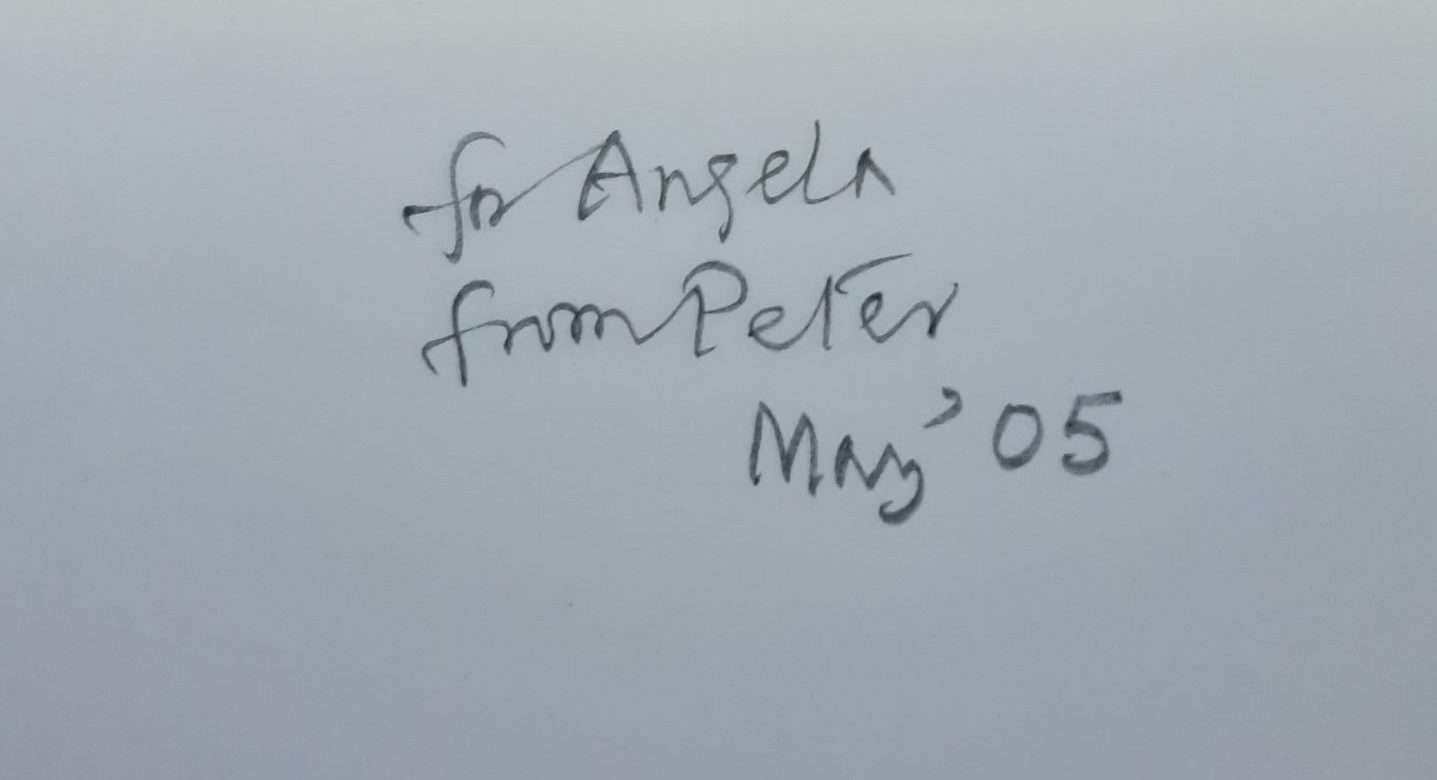 for Angela
from Peter
May '05